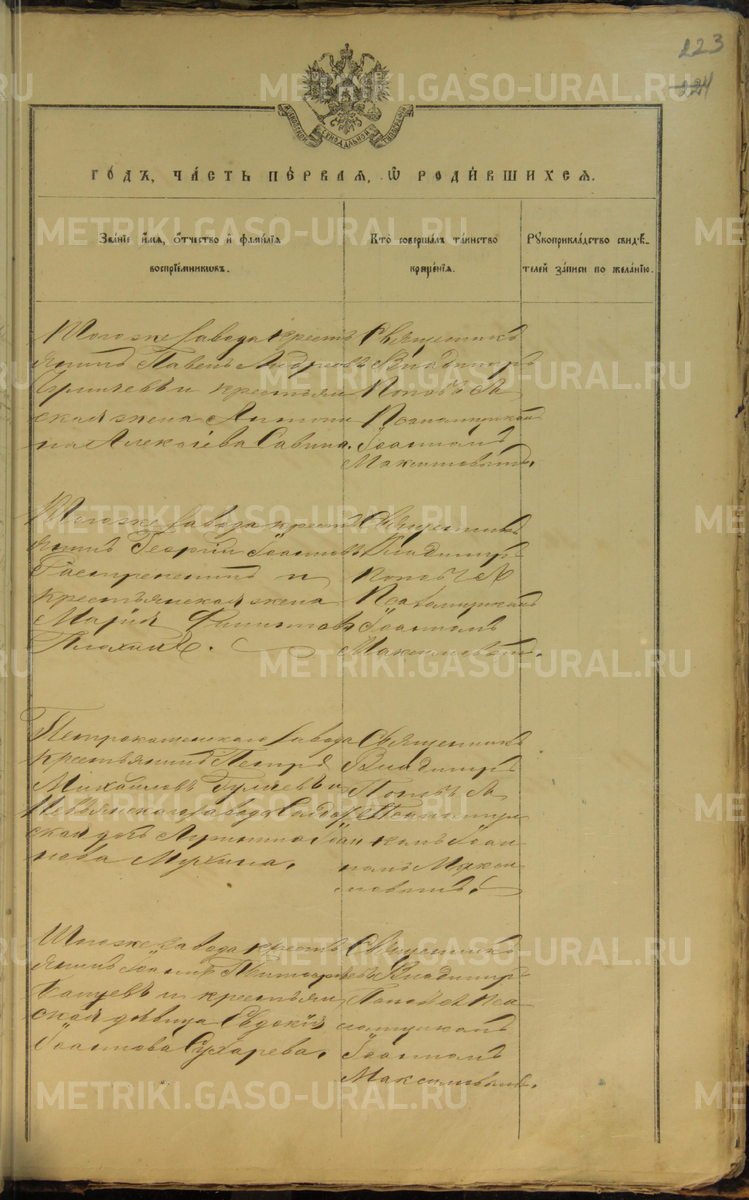 223
224
МОСКОВСКОЙ СѴНОДАЛЬНОЙ ТИПОГРАФІИ
ГОДЪ, ЧАСТЬ ПЕРВАЯ, Ѡ РОДИВШИХСЯ.
Званіе имя, отчество и фамилія
воспріемниковъ.
Кто совершалъ таинство
крещенія.
Рукоприкладство свидѣ-
телей записи по желанію.
Тогоже завода кресть
янинъ Павелъ
и крестьян
ская жена Антони
на Алексѣева Савина.
Священникъ
Владимиръ
Поповъ съ
Псаломщикомъ
Іоанномъ
Максимовымъ.
Тогоже завода кресть
янинъ Георгій Іоанновъ
и
крестьянская жена
Марія Филиппова
Плохихъ.
Священникъ
Владимиръ
Поповъ съ
Псаломщикомъ
Іоанномъ
Максимовымъ.
Петрокаменскаго завода
крестьянинъ Петръ
Михайловъ Гуляевъ и
Невьянскаго завода Солдат
ская дочь Агрипина Іоан
нова Мухина.
Священникъ
Владимиръ
Поповъ съ
Псаломщи
комъ Іоан
номъ Макси
мовымъ.
Тогоже завода кресть
янинъ Іоаннъ
и крестьян
ская дѣвица Евдокія
Іоаннова Сухарева.
Священникъ
Владимиръ
Поповъ съ Пса
ломщикомъ
Іоанномъ
Максимовымъ.
METRIKI.GASO-URAL.RU